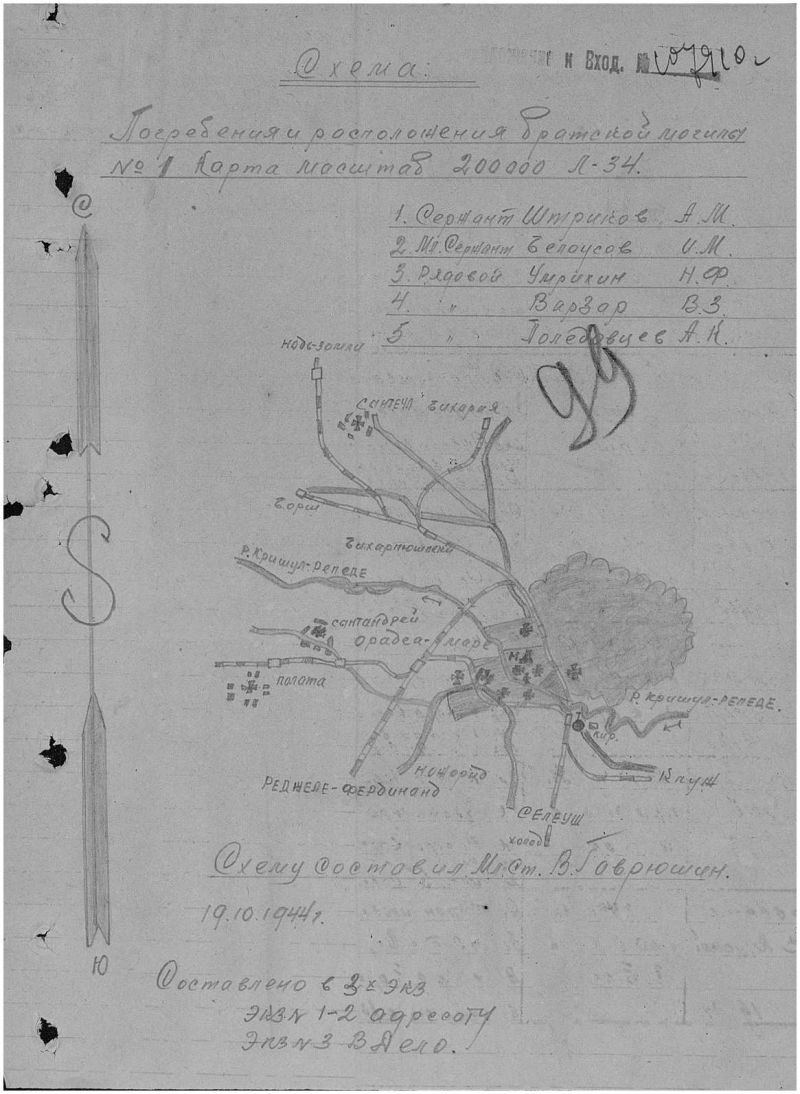 Схема:
и Вход. №
Погребения и расположения братской могилы
№ 1 Карта масштаб 200000 Л-34.
С
1. Сержант Штриков А.М.
2. Мл. Сержант Белоусов И.М.
3. Рядовой Умрихин Н.Ф.
4. " Варзар В.З.
5 " Полебавцев А.К.
99
Сантеул
Бихария
Борш
Бихарпюшпеки
Р. Кришул-Репеде
Сантандрей
Орадеа-Маре
Палата
Р. Кришул-Репеде.
кир.
Ножорид
Клуж
Реджеле-Фердинанд
Селеуш
холод
Схему составил Мл. Ст. В. Гаврюшин.
19.10.1944г.
Ю
Составлено в 3х экз
Экз N 1-2 адресату
Экз N 3 В Дело.